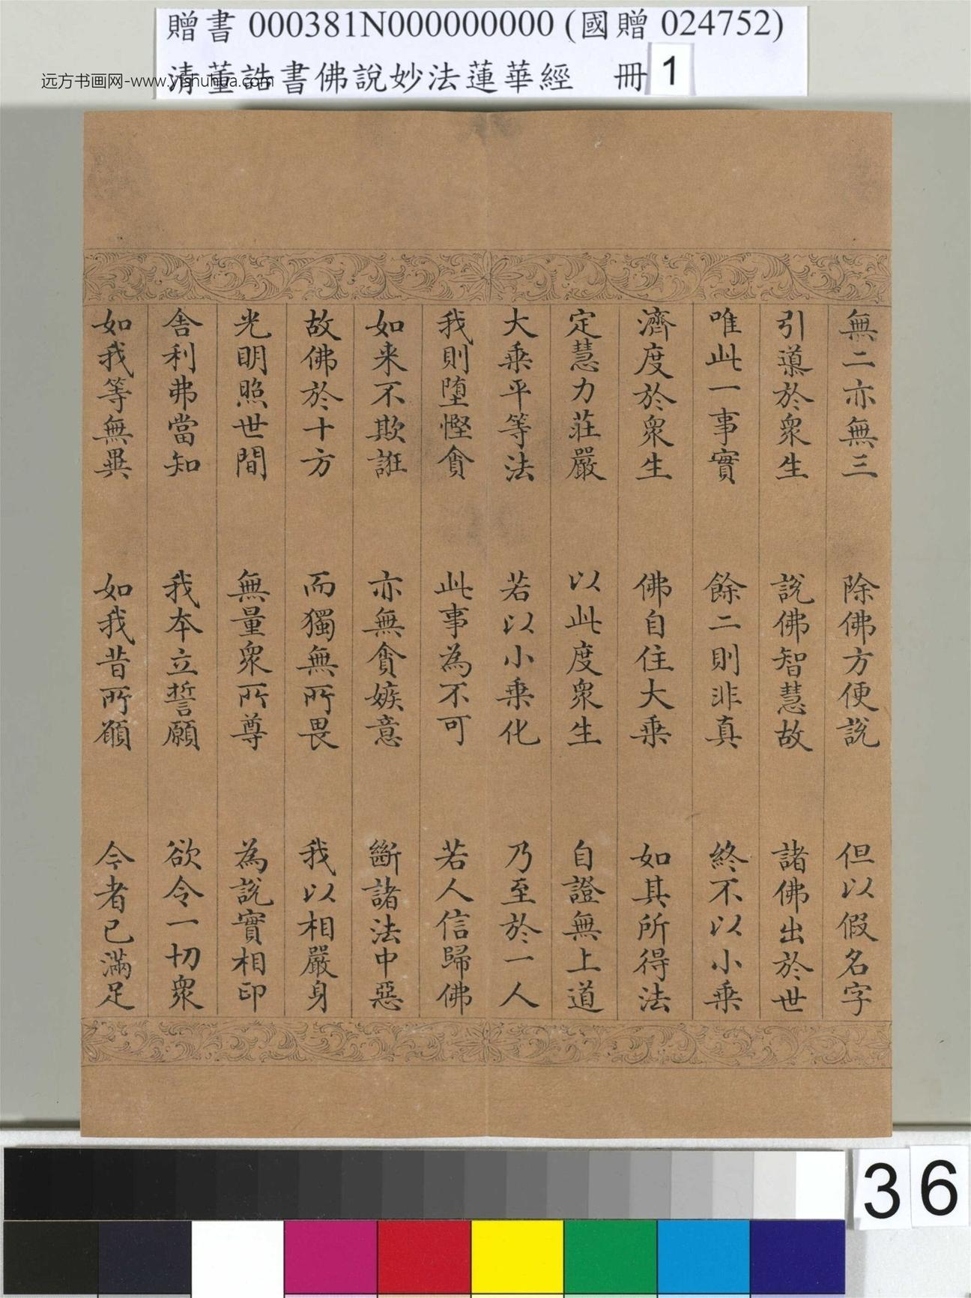 贈書 000381N000000000 (國贈 024752)
清董誥書佛說妙法蓮華經 冊 1
远方书画网-www.yfshuhua.com
無二亦無三 除佛方便說 但以假名字
引導於衆生 說佛智慧故 諸佛出於世
唯此一事實 餘二則非真 終不以小乘
濟度於衆生 佛自住大乘 如其所得法
定慧力莊嚴 以此度衆生 自證無上道
大乘平等法 若以小乘化 乃至於一人
我則墮慳貪 此事為不可 若人信歸佛
如来不欺誑 亦無貪嫉意 斷諸法中惡
故佛於十方 而獨無所畏 我以相嚴身
光明照世間 無量衆所尊 為說實相印
舍利弗當知 我本立誓願 欲令一切衆
如我等無異 如我昔所願 今者已滿足
36